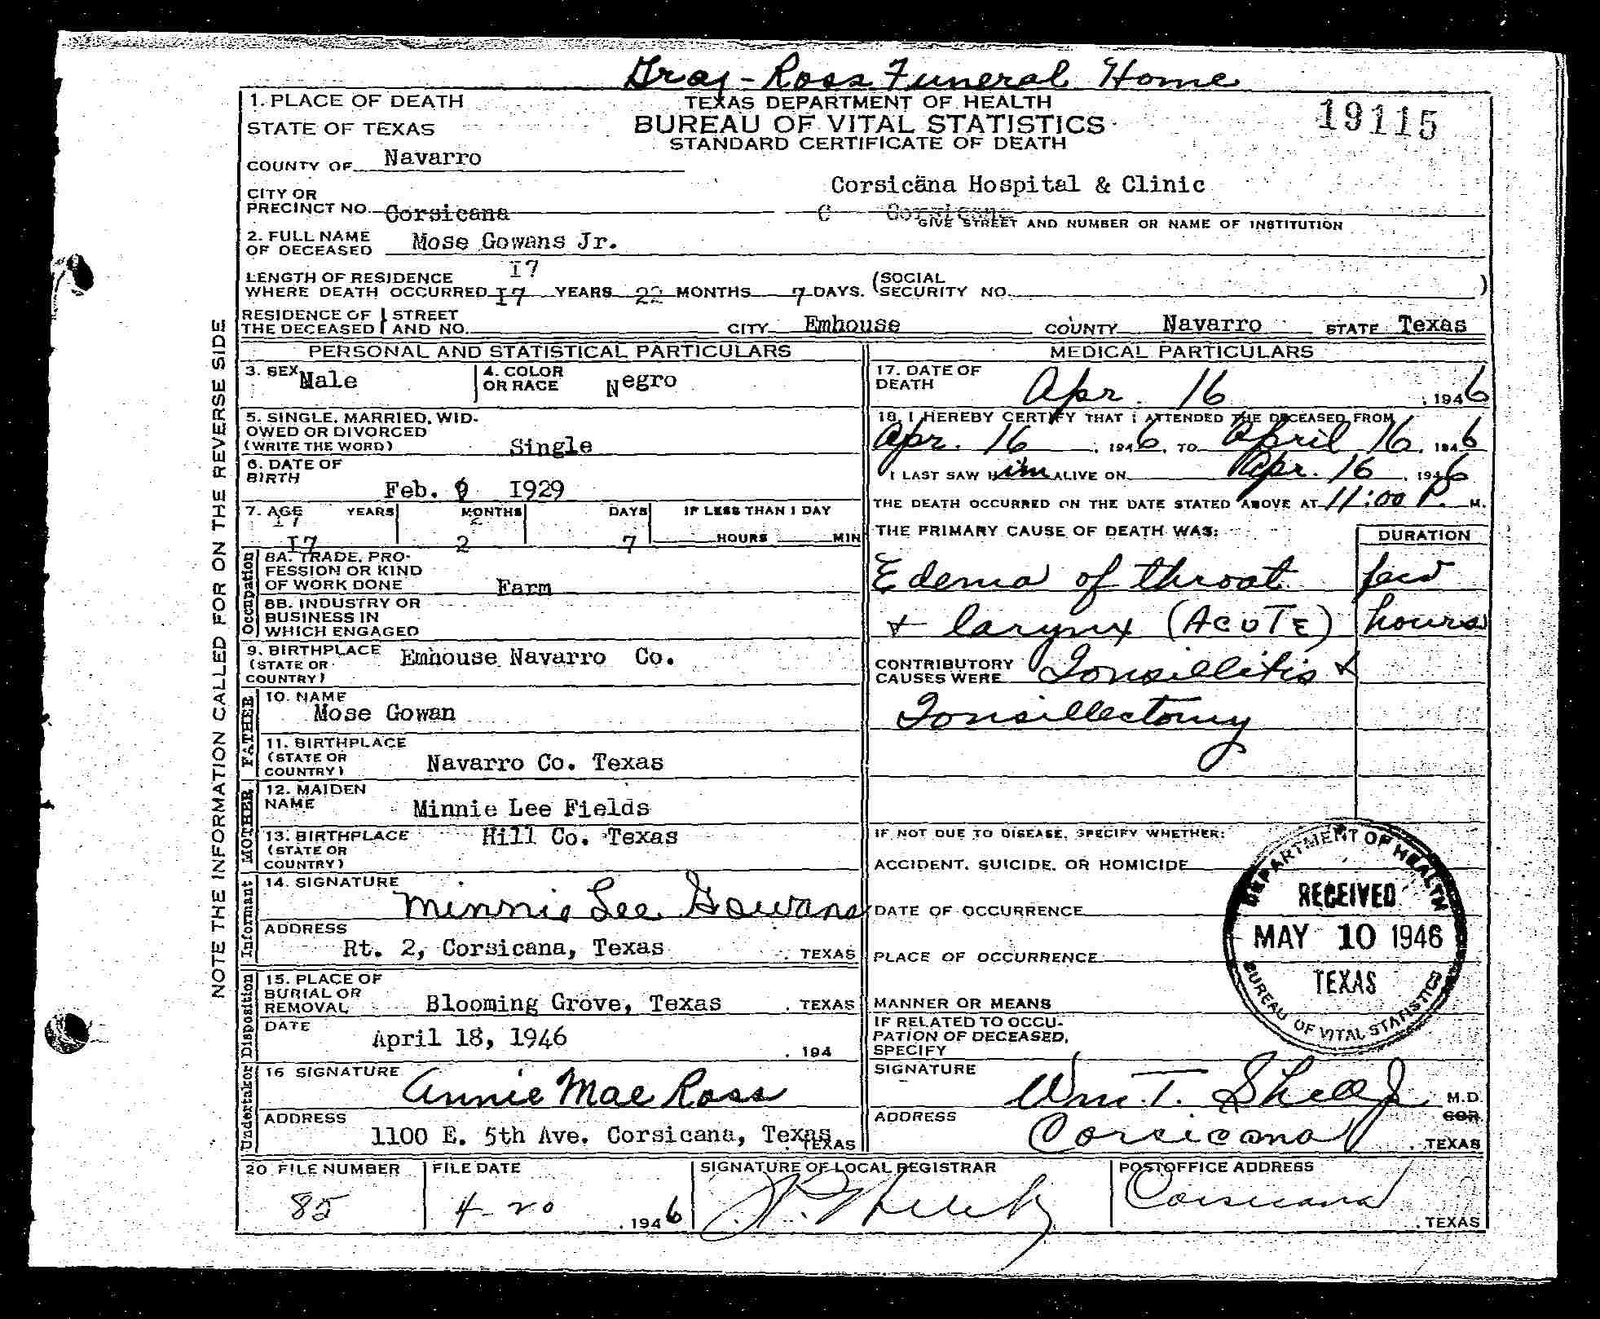 Gray-Ross Funeral Home
1. PLACE OF DEATH
STATE OF TEXAS
TEXAS DEPARTMENT OF HEALTH
BUREAU OF VITAL STATISTICS
STANDARD CERTIFICATE OF DEATH
19115
COUNTY OF Navarro
Corsicana Hospital & Clinic
CITY OR
PRECINCT NO. Corsicana C Corsicana
GIVE STREET AND NUMBER OR NAME OF INSTITUTION
2. FULL NAME
OF DECEASED Mose Gowans Jr.
17
LENGTH OF RESIDENCE
WHERE DEATH OCCURRED 17 YEARS 22 MONTHS 7 DAYS. (SOCIAL
SECURITY NO. )
RESIDENCE OF THE DECEASED STREET AND NO. CITY Emhouse COUNTY Navarro STATE Texas
PERSONAL AND STATISTICAL PARTICULARS
3. SEX Male 4. COLOR OR RACE Negro
5. SINGLE, MARRIED, WID-
OWED OR DIVORCED
(WRITE THE WORD) Single
6. DATE OF
BIRTH Feb. 9 1929
7. AGE YEARS MONTHS DAYS IF LESS THAN 1 DAY
17 2
17 2 7 HOURS MIN
Occupation
8A. TRADE, PRO-
FESSION OR KIND
OF WORK DONE Farm
8B. INDUSTRY OR
BUSINESS IN
WHICH ENGAGED
9. BIRTHPLACE
(STATE OR
COUNTRY) Emhouse Navarro Co.
FATHER
10. NAME
Mose Gowan
11. BIRTHPLACE
(STATE OR
COUNTRY) Navarro Co. Texas
MOTHER
12. MAIDEN
NAME Minnie Lee Fields
13. BIRTHPLACE Hill Co. Texas
(STATE OR
COUNTRY)
Informant
14. SIGNATURE
Minnie Lee Gowans
ADDRESS
Rt. 2, Corsicana, Texas . TEXAS
Disposition
15. PLACE OF
BURIAL OR
REMOVAL Blooming Grove, Texas . TEXAS
DATE
April 18, 1946 . 194
Undertaker
16 SIGNATURE Annie Mae Ross
ADDRESS
1100 E. 5th Ave. Corsicana, Texas . TEXAS
MEDICAL PARTICULARS
17. DATE OF
DEATH Apr. 16 , 1946
18. I HEREBY CERTIFY THAT I ATTENDED THE DECEASED FROM
Apr. 16 , 1946, TO April 16, 1946
I LAST SAW Him ALIVE ON Apr. 16 , 1946
THE DEATH OCCURRED ON THE DATE STATED ABOVE AT 11:00 P. M.
THE PRIMARY CAUSE OF DEATH WAS: DURATION
Edema of throat few
& larynx (ACUTE) hours
CONTRIBUTORY
CAUSES WERE Tonsillitis &
Tonsillectomy
IF NOT DUE TO DISEASE, SPECIFY WHETHER:
ACCIDENT, SUICIDE, OR HOMICIDE
DATE OF OCCURRENCE
PLACE OF OCCURRENCE
MANNER OR MEANS
IF RELATED TO OCCU-
PATION OF DECEASED,
SPECIFY
DEPARTMENT OF HEALTH
RECEIVED
MAY 10 1946
TEXAS
BUREAU OF VITAL STATISTICS
SIGNATURE Wm. T. Shell Jr M.D.
COR.
ADDRESS Corsicana . TEXAS
20. FILE NUMBER FILE DATE SIGNATURE OF LOCAL REGISTRAR POSTOFFICE ADDRESS
85 4-20 . 1946 Corsicana . TEXAS
NOTE THE INFORMATION CALLED FOR ON THE REVERSE SIDE